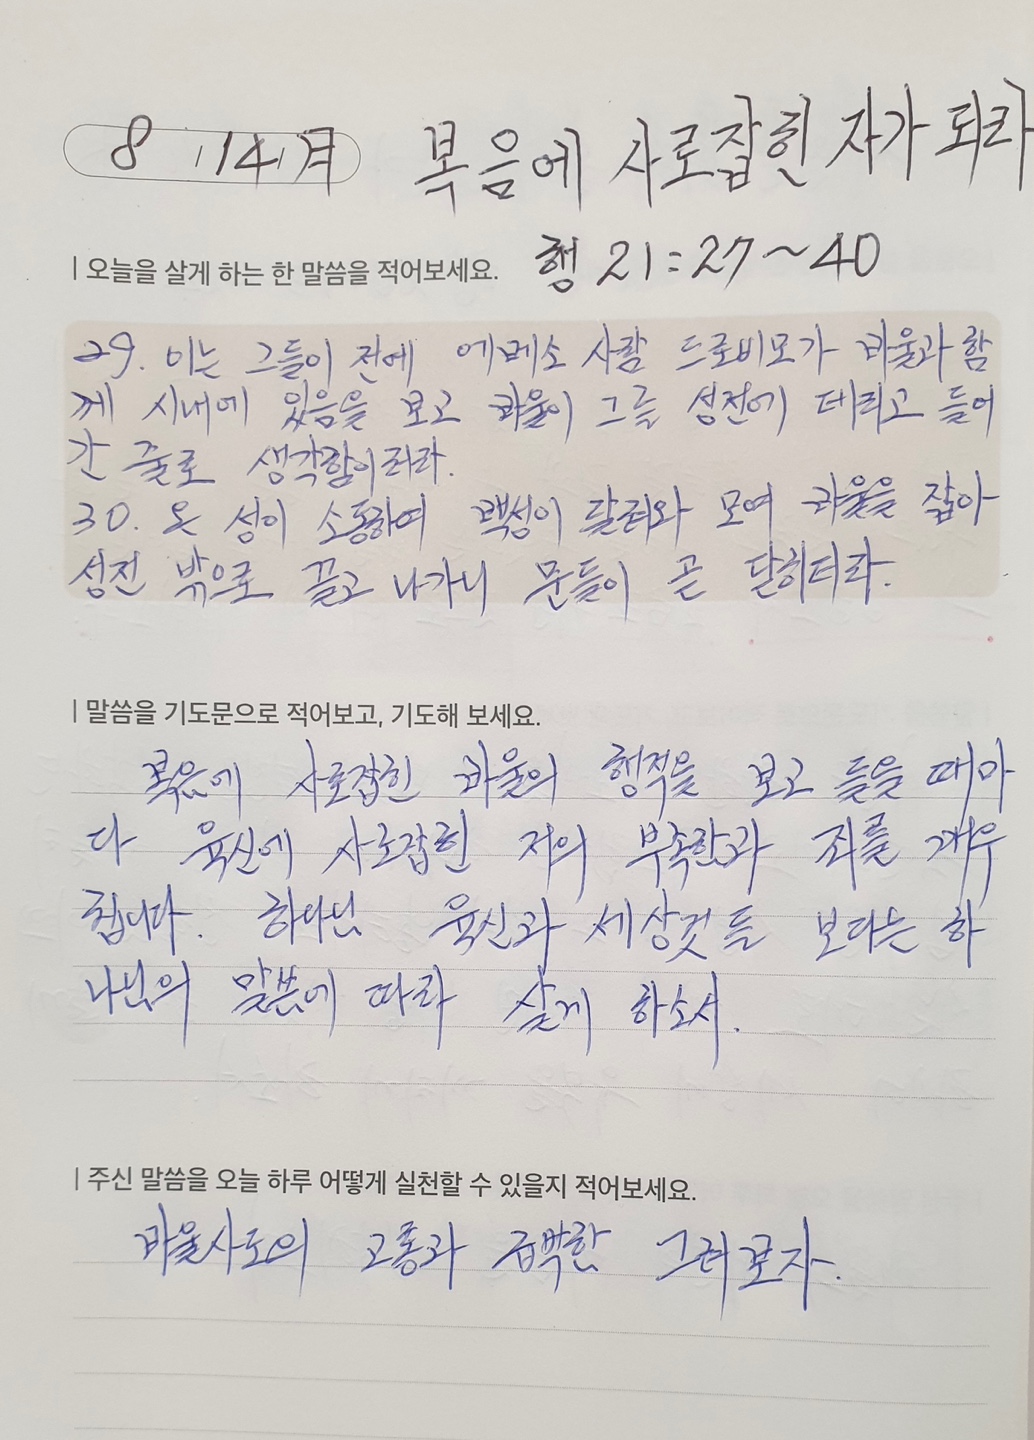 8 14 月 복음에 사로잡힌 자가 되라
| 오늘을 살게 하는 한 말씀을 적어보세요. 행 21:27~40
29. 이는 그들이 전에 에베소 사람 드로비모가 바울과 함
께 시내에 있음을 보고 바울이 그를 성전에 데리고 들어
간 줄로 생각함이러라.
30. 온 성이 소동하여 백성이 달려와 모여 바울을 잡아
성전 밖으로 끌고 나가니 문들이 곧 닫히더라.
| 말씀을 기도문으로 적어보고, 기도해 보세요.
복음에 사로잡힌 바울의 행적을 보고 들을 때마
다 육신에 사로잡힌 저의 부족함과 죄를 깨우
칩니다. 하나님 육신과 세상것들 보다는 하
나님의 말씀에 따라 살게 하소서.
| 주신 말씀을 오늘 하루 어떻게 실천할 수 있을지 적어보세요.
바울사도의 고통과 급박함 그려보자.